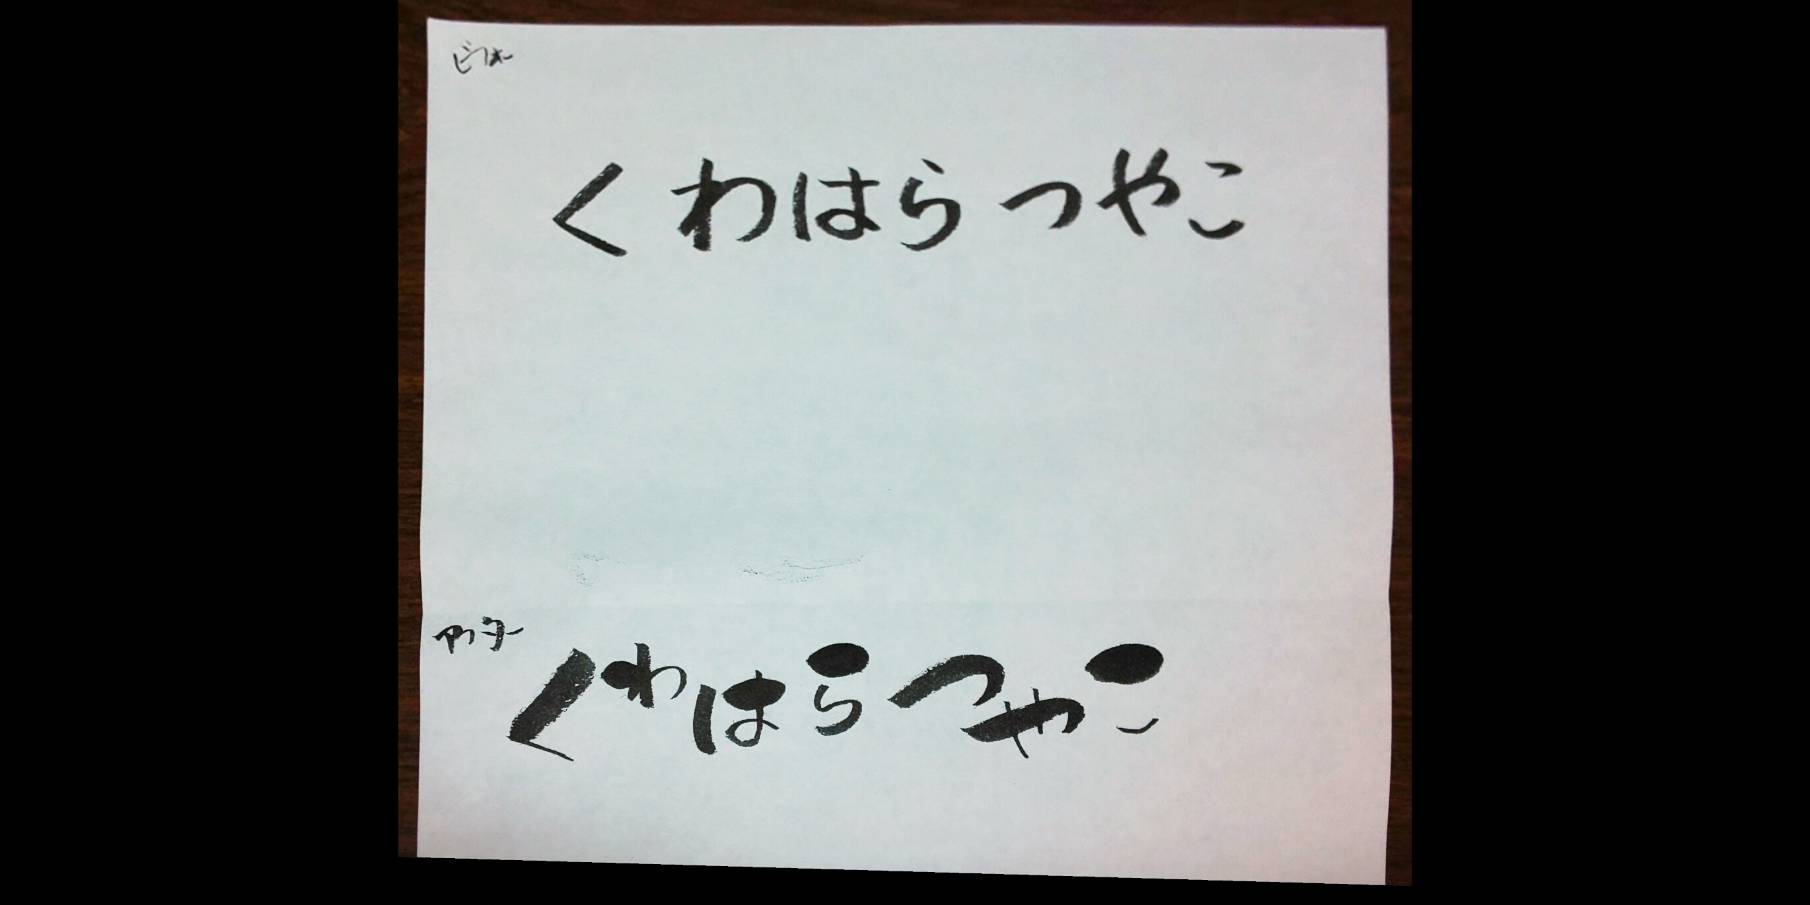 ビフォー
くわはらつやこ
アフター
くわはらつやこ